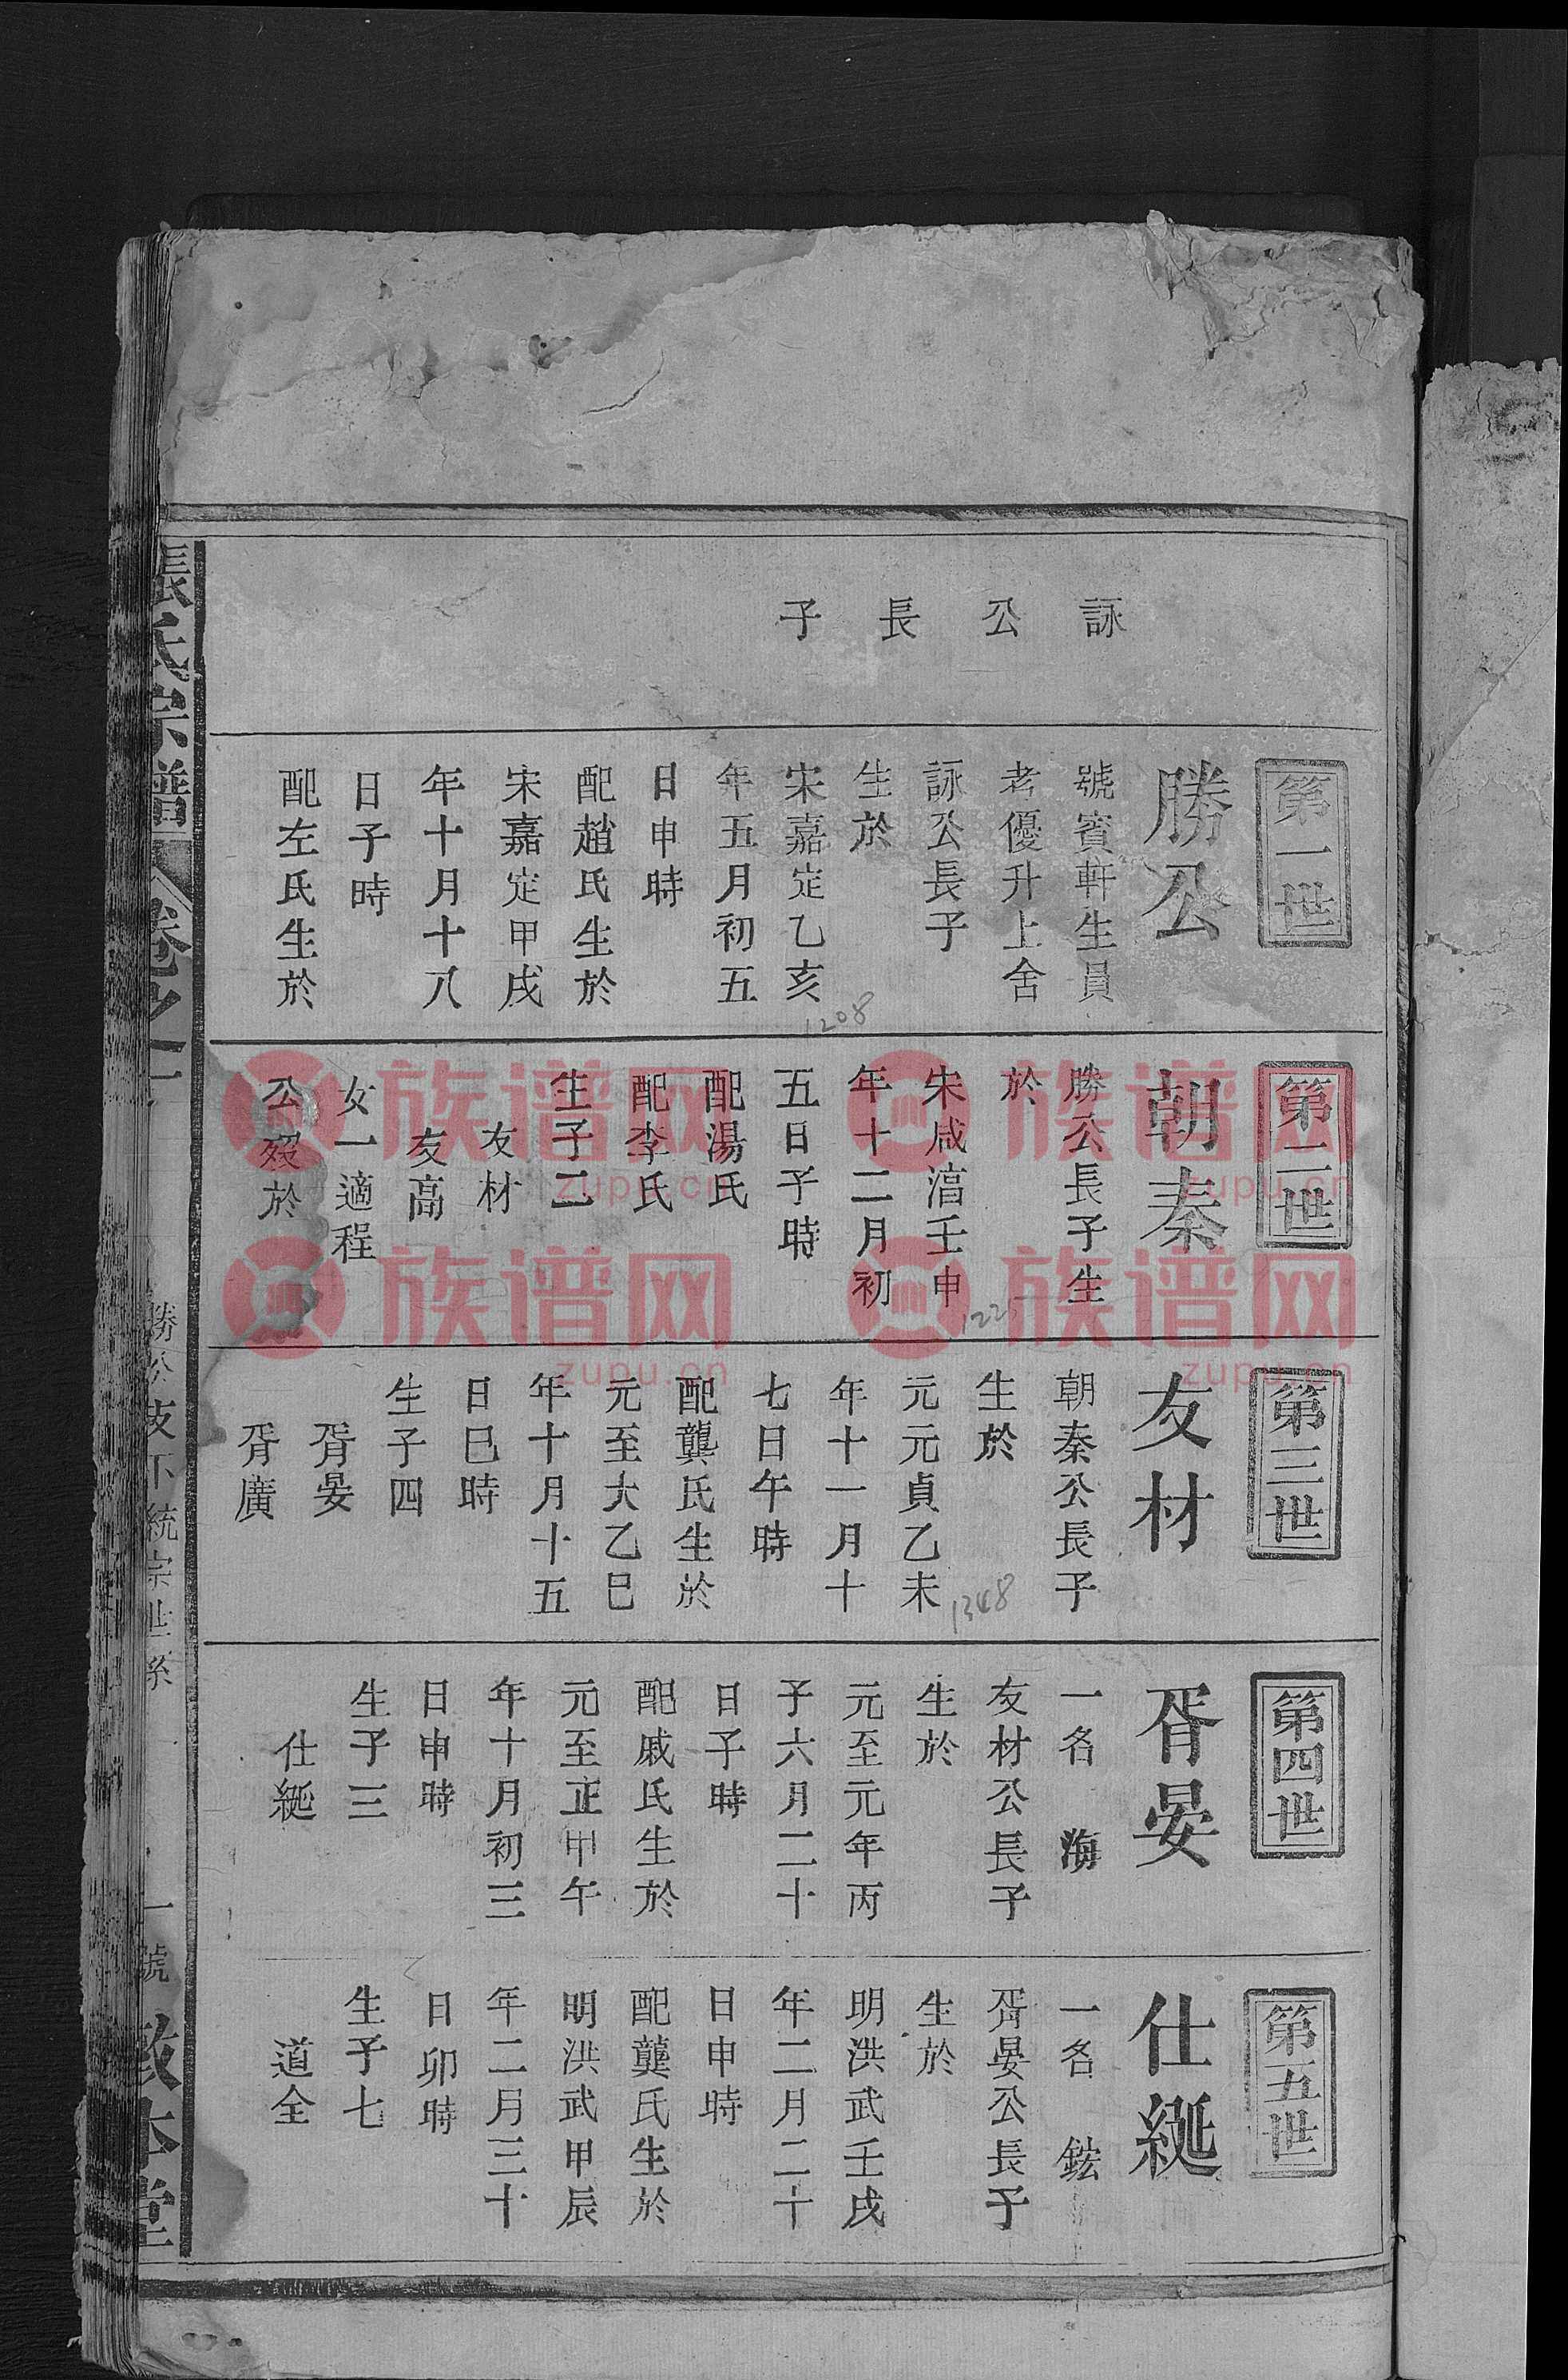 詠公長子
第一世
勝公
號賓軒生員
考優升上舍
詠公長子
生於
宋嘉定乙亥
年五月初五
日申時
配趙氏生於
宋嘉定甲戌
年十月十八
日子時
配左氏生於
1208
第二世
朝秦
勝公長子生
於
宋咸淳壬申
年十二月初
五日子時
配湯氏
配李氏
生子二
友材
友高
女一適程
公歿於
第三世
友材
朝秦公長子
生於
元元貞乙未
年十一月十
七日午時
配龔氏生於
元至大乙巳
年十月十五
日巳時
生子四
胥晏
胥廣
1348
第四世
胥晏
一名 海
友材公長子
生於
元至元年丙
子六月二十
日子時
配戚氏生於
元至正甲午
年十月初三
日申時
生子三
仕綖
第五世
仕綖
一名 鋐
胥晏公長子
生於
明洪武壬戌
年二月二十
日申時
配龔氏生於
明洪武甲辰
年二月三十
日卯時
生子七
道全
張氏宗譜
卷之一
勝公支下統宗世系
一號
敦本堂
族谱网
zupu.cn
族谱网
zupu.cn
族谱网
zupu.cn
族谱网
zupu.cn